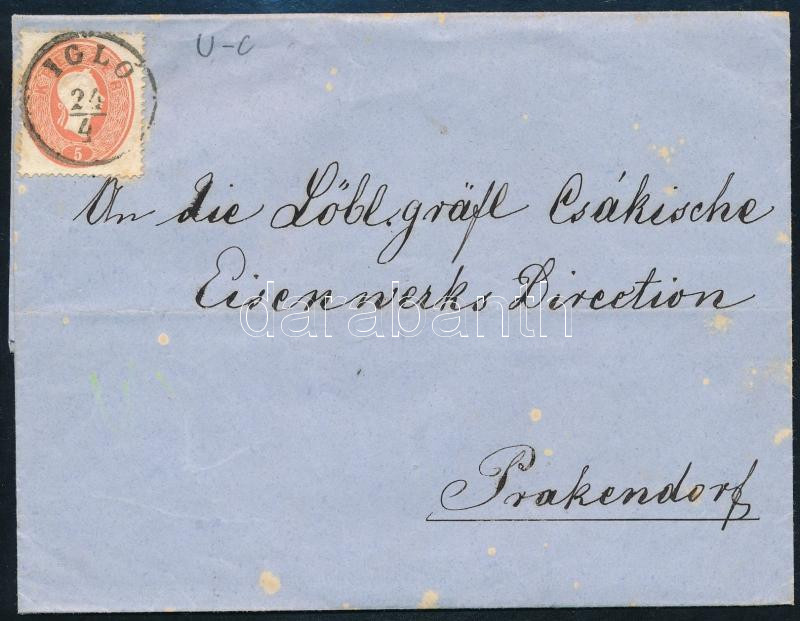 U-C
IGLÓ
24
4
5
An die Löbl. gräfl Csákische
Eisenwerks Direction
darabanth
Prakendorf